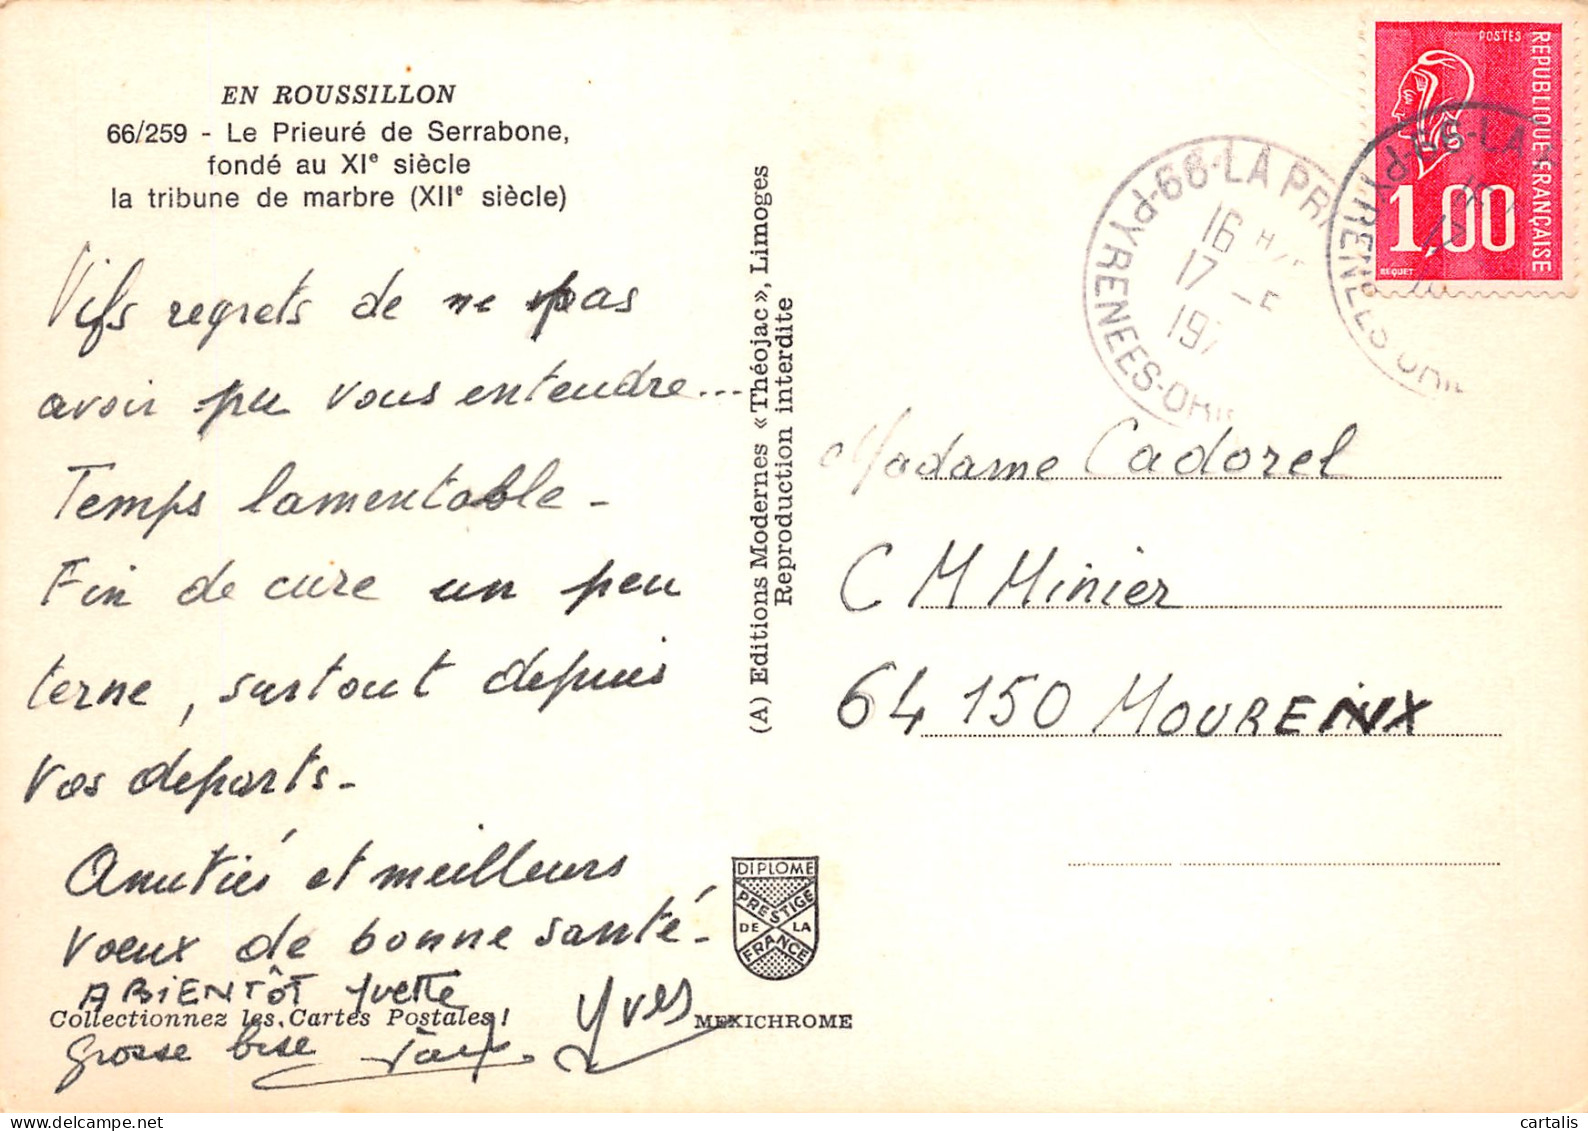 EN ROUSSILLON
66/259 - Le Prieuré de Serrabone,
fondé au XIe siècle
la tribune de marbre (XIIe siècle)
Vifs regrets de ne pas
avoir pu vous entendre...
Temps lamentable -
Fin de cure un peu
terne, surtout depuis
vos departs -
Amitiés et meilleurs
voeux de bonne santé -
A BIENTÔT Yvette
Yves
Collectionnez les Cartes Postales !
MEXICHROME
Grosse bise
(A) Editions Modernes «Théojac», Limoges
Reproduction interdite
DIPLOME
PRESTIGE
DE LA
FRANCE
POSTES
REPUBLIQUE FRANÇAISE
1,00
BEQUET
66-LA PR
PYRENEES-OR
16 H
17 -5
197
66-LA
PYRENEES-OR
Madame Cadorel
C M Minier
64 150 MOURENX
cartalis